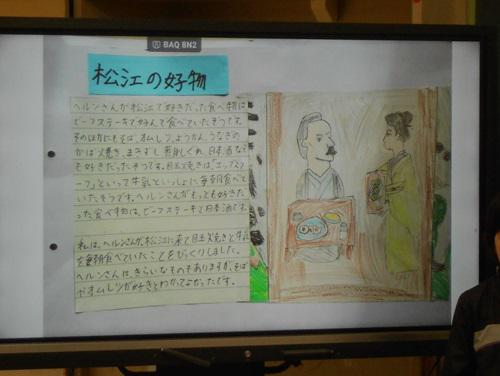 BAQ BN2
松江の好物
ヘルンさんが松江で好きだった食べ物は
ビーフステーキで好んで食べていたそうです。
そのほかにもそば、オムレツ、ようかん、うなぎの
かば焼き、まきずし、日本酒など
も好きだったそうです。目玉焼きは、「エッグスフ
ーフ」といって牛乳といっしょに毎朝食べて
いたそうです。ヘルンさんがもっとも好きだ
った食べものは、ビーフステーキと日本酒です。
私は、ヘルンさんが、松江に来て目玉焼きと牛乳
を毎朝食べていたことをびっくりしました。
ヘルンさんは、きらいなものもありますが、そば
やオムレツが好きとわかってよかったです。